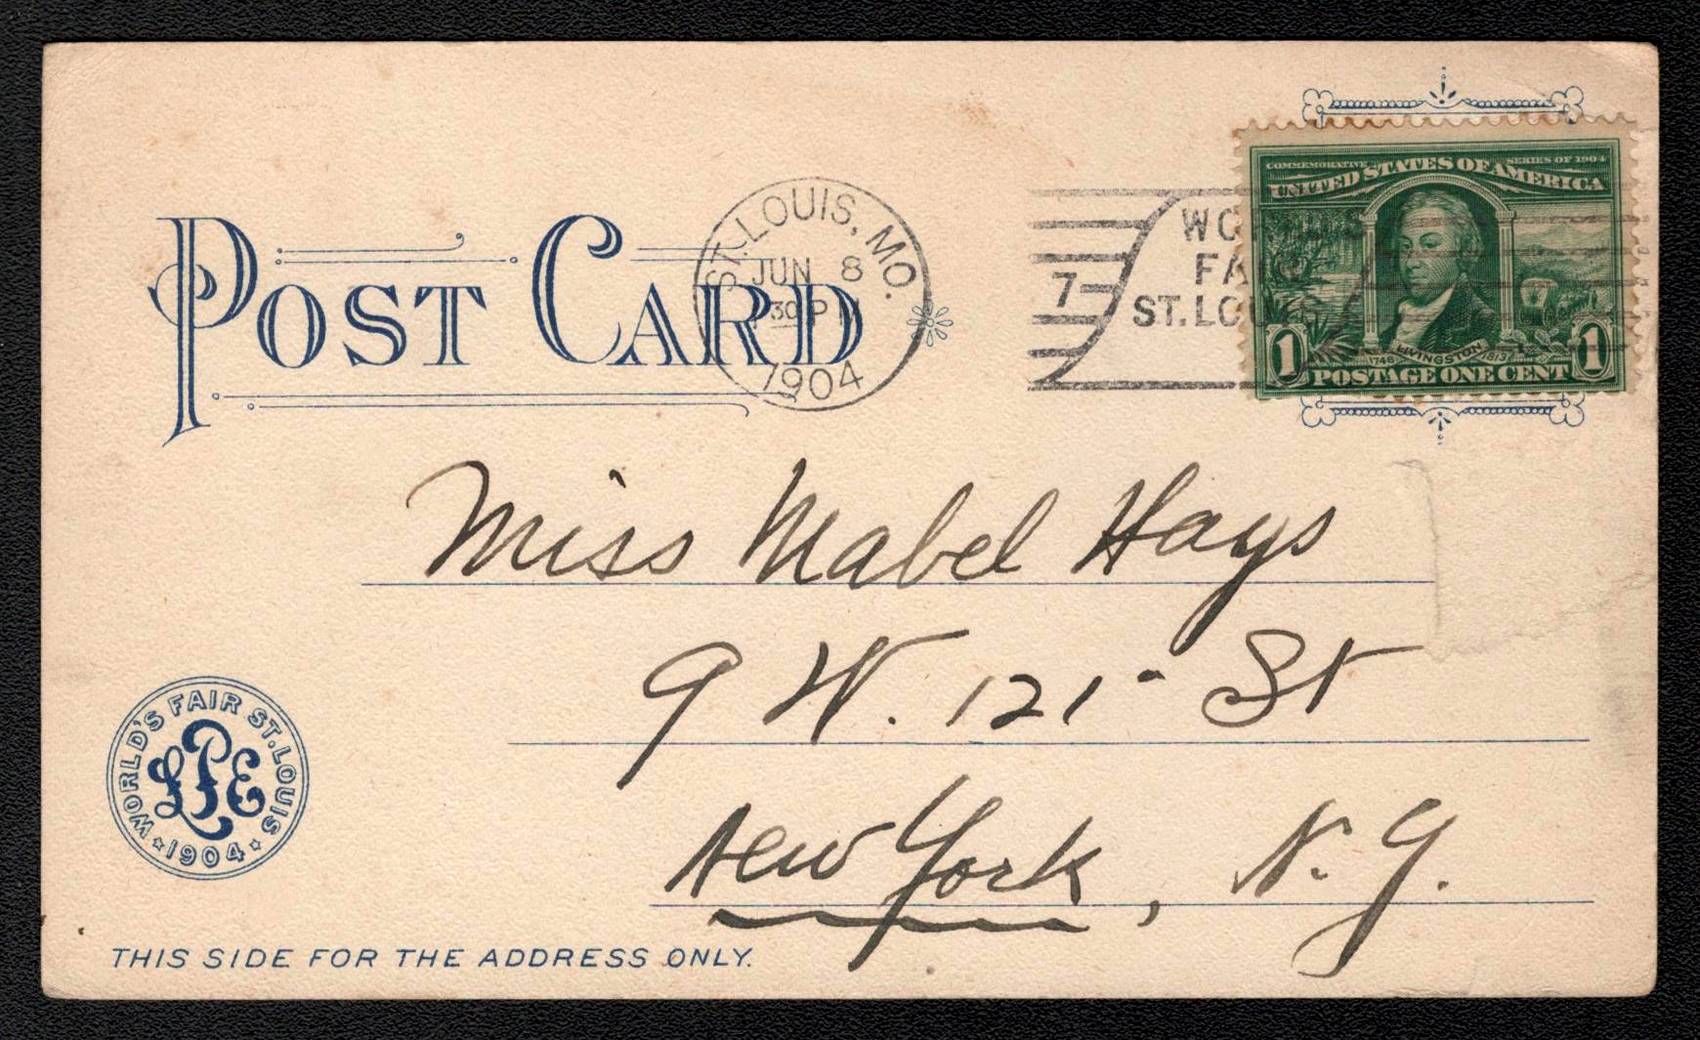 POST CARD
ST. LOUIS, MO.
JUN 8
30 P
1904
7
WORLD'S
FAIR
ST. LOUIS
COMMEMORATIVE SERIES OF 1904
UNITED STATES OF AMERICA
LIVINGSTON
1746 1813
1 POSTAGE ONE CENT 1
Miss Mabel Hays
9 W. 121 - St
New York, N. Y.
WORLD'S FAIR ST. LOUIS
LPE
1904
THIS SIDE FOR THE ADDRESS ONLY.